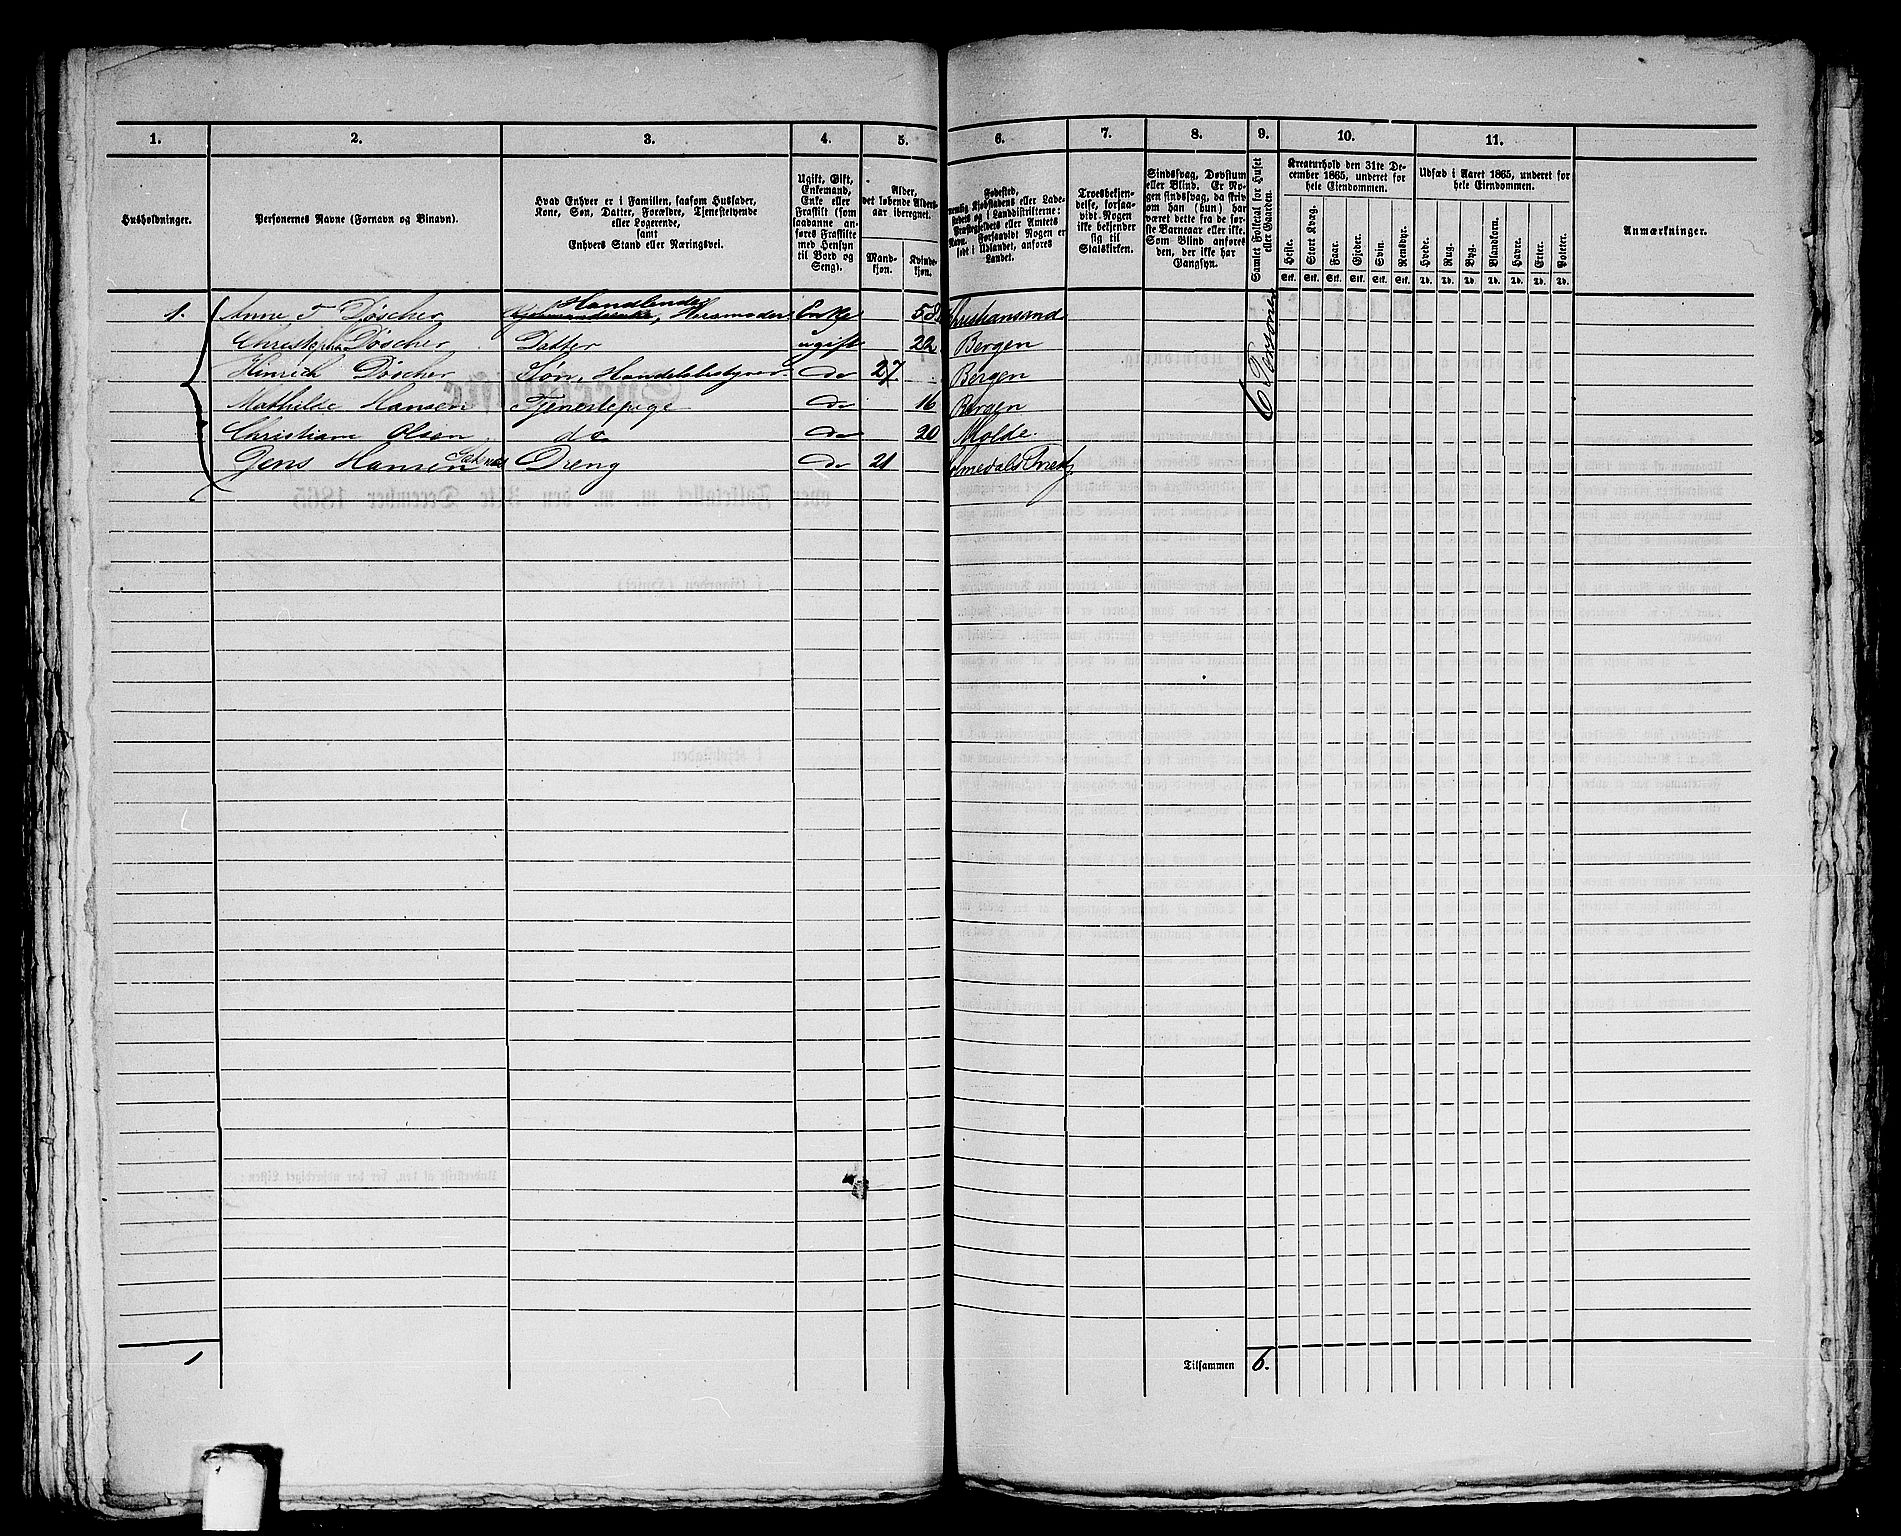 1. 2. 3. 4. 5. 6. 7. 8. 9. 10. 11.
Husholdninger.
Personernes Navne (Fornavn og Binavn).
Hvad Enhver er i Familien, saasom Husfader,
Kone, Søn, Datter, Forældre, Tjenestetyende
eller Logerende,
samt
Enhvers Stand eller Næringsvei.
Ugift, Gift,
Enkemand,
Enke eller
Fraskilt (som
saadanne an-
føres Fraskilte
med Hensyn
til Bord og
Seng).
Alder,
det løbende Alders-
aar iberegnet.
Mand-
kjøn.
Kvinde-
kjøn.
Fødested,
nemlig Kjøbstadens eller Lade-
stedets og i Landdistrikterne:
Præstegjeldets eller Amtets
Navn. Forsaavidt Nogen er
født i Udlandet, anføres
Landet.
Troesbekjen-
delse, forsaa-
vidt Nogen
ikke bekjender
sig til
Statskirken.
Sindssvag, Døvstum
eller Blind. Er No-
gen sindssvag, da skrives
om han (hun) har
været dette fra de før-
ste Barneaar eller ikke.
Som Blind anføres
den, der ikke har
Gangsyn.
Samlet Folketal for Huset
eller Gaarden.
Kreaturhold den 31te De-
cember 1865, underet for
hele Eiendommen.
Heste. Stort Kvæg. Faar. Gjeder. Svin. Rensdyr.
Stk. Stk. Stk. Stk. Stk. Stk.
Udsæd i Aaret 1865, underet for
hele Eiendommen.
Hvede. Rug. Byg. Blandkorn. Havre. Erter. Poteter.
Td. Td. Td. Td. Td. Td. Td.
Anmærkninger.
Handlende
1. Anne T Döscher , Husmoder Enke 58 Christiansand
Döscher Datter ugift 22 Bergen
Hinrich Döscher Søn, Handelsbestyrer do 27 Bergen
Mathilde Hansen Tjenestepige do 16 Bergen
Christiane Olsen do do 20 Molde
Jens Hansen Dreng do 21
6 Personer
1
Tilsammen 6.